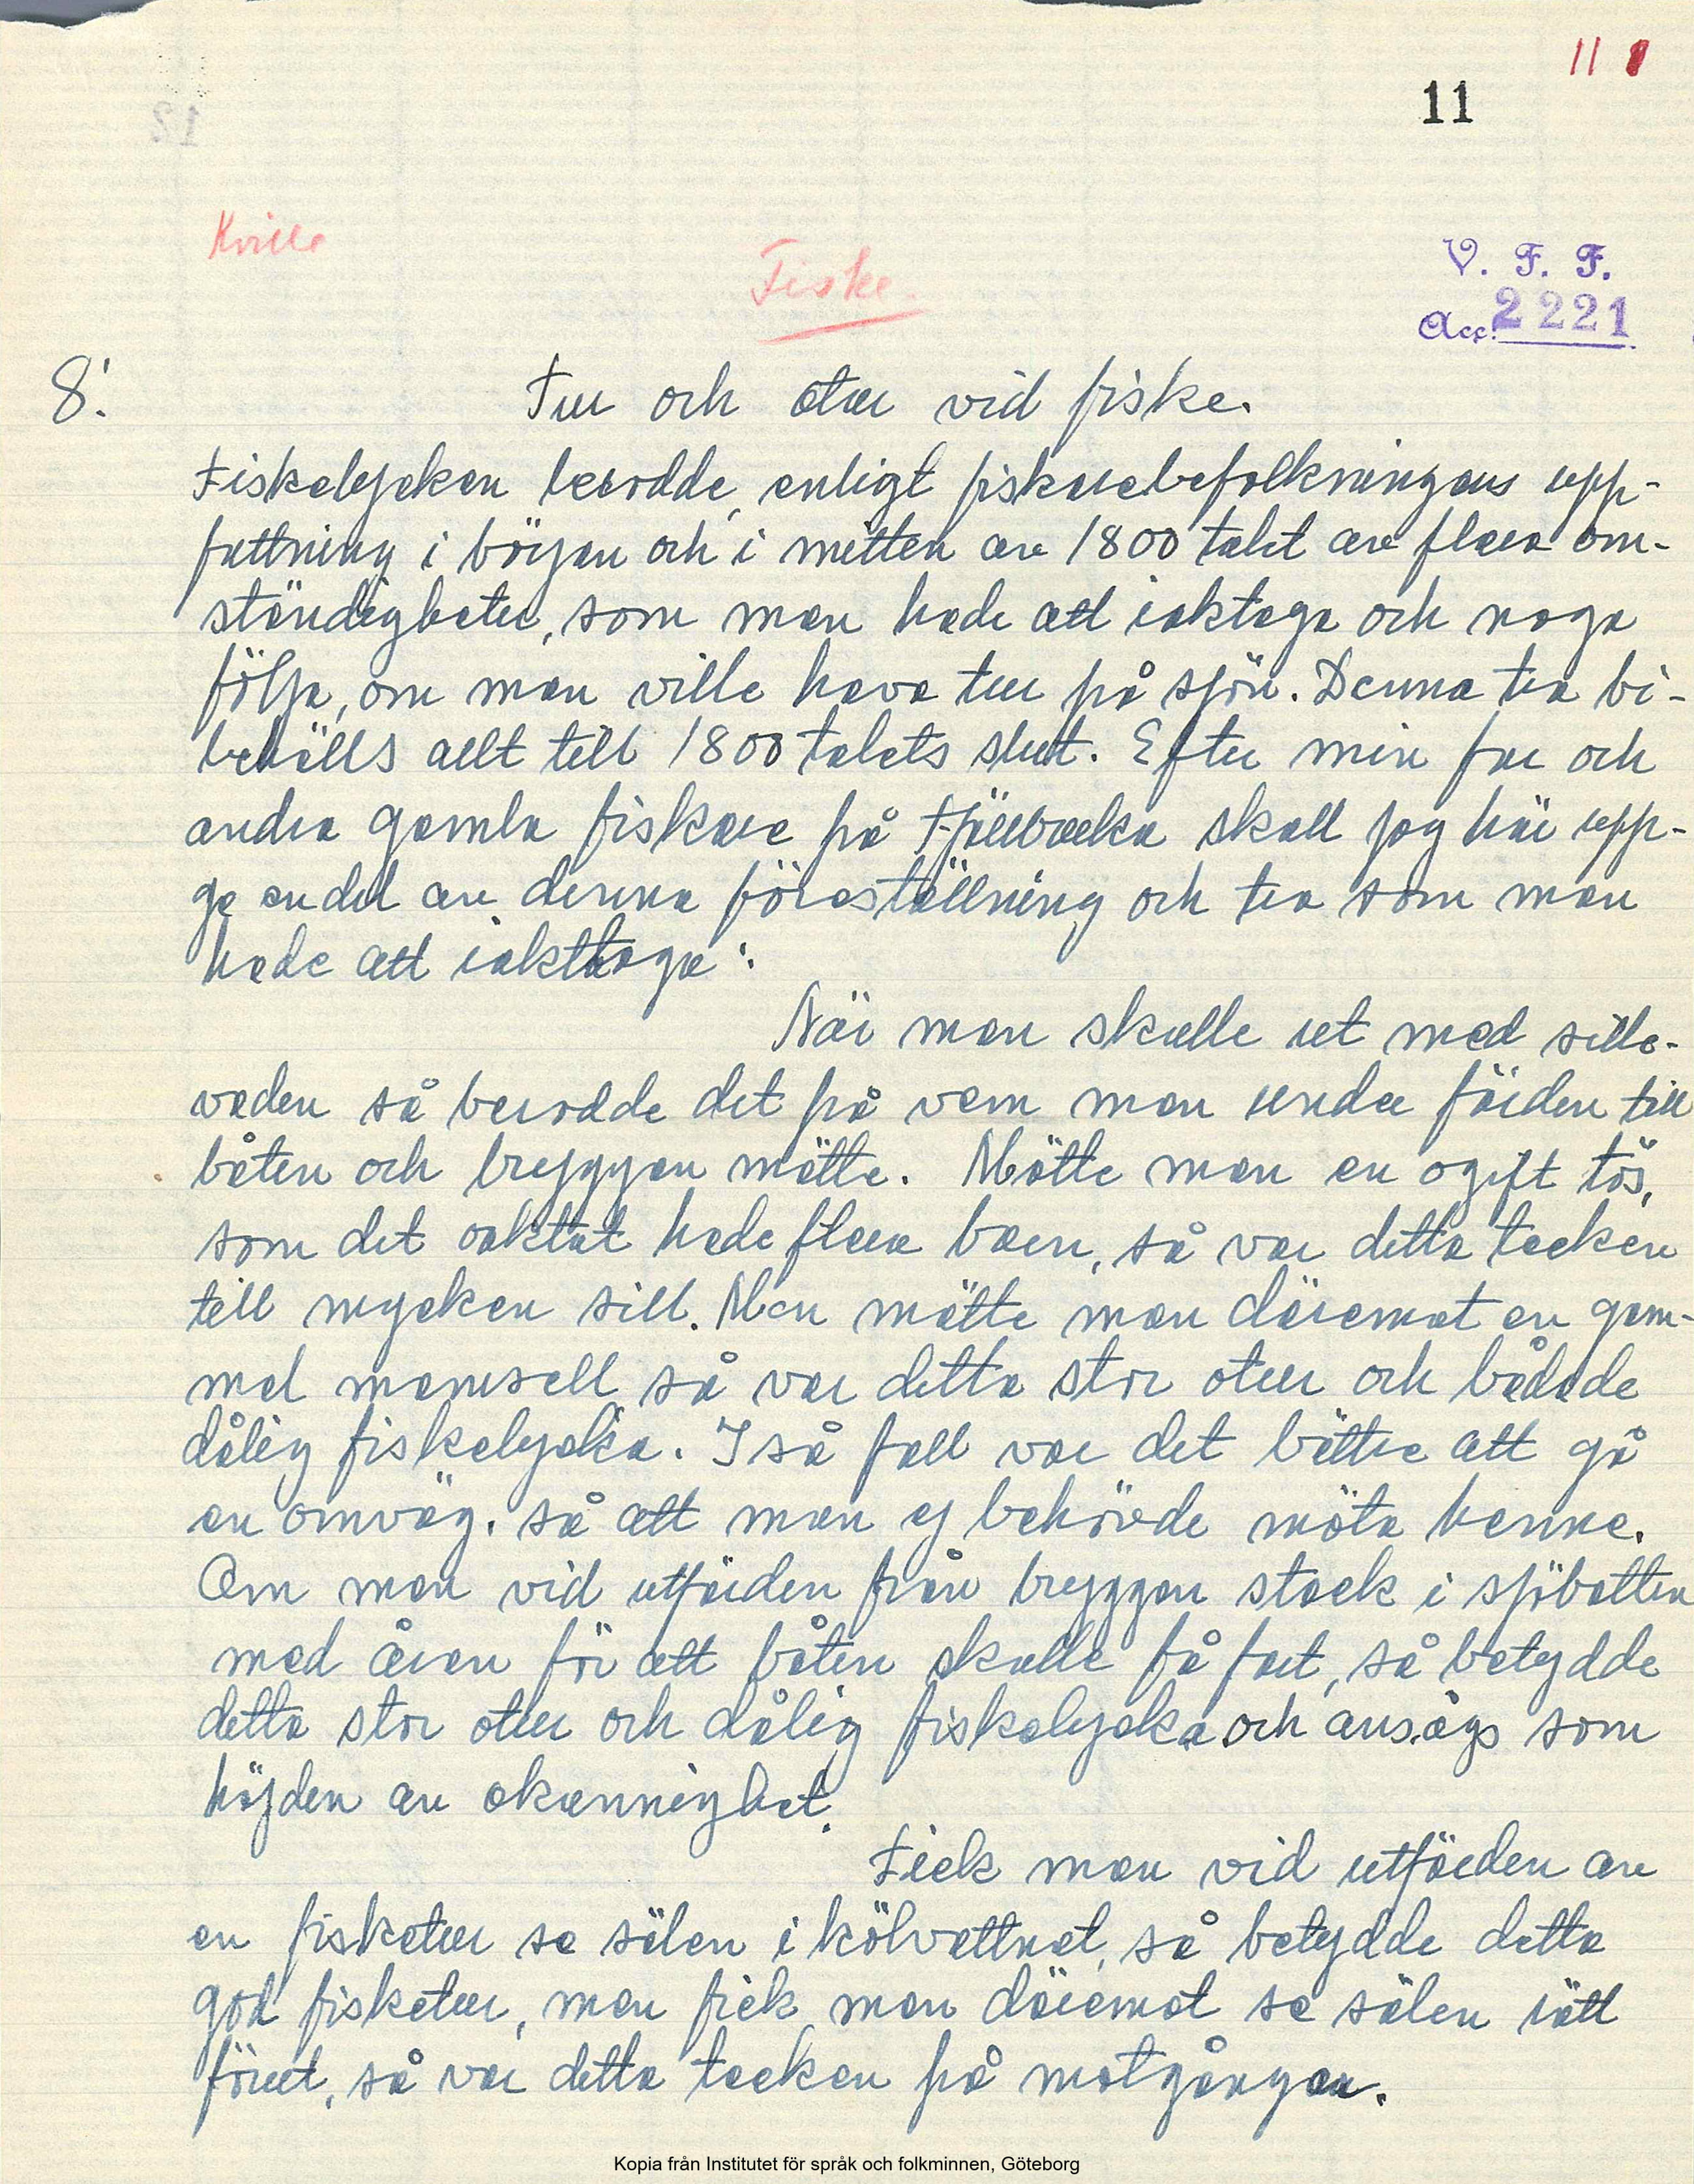 11
11
Kville
Fiske.
V. F. F.
Acc. 2221
8. Tur och otur vid fiske.
Fiskelyckan berodde, enligt fiskarebefolkningens upp-
fattning i början och i mitten av 1800 talet av flera om-
ständigheter, som man hade att iakttaga och noga
följa, om man ville hava tur på sjön. Denna tro bi-
behölls allt till 1800 talets slut. Efter min far och
andra gamla fiskare på Fjällbacka skall jag här upp-
ge endel av denna föreställning och tro som man
hade att iakttaga:
När man skulle ut med sille-
vaden så berodde det på vem man under färden till
båten och bryggan mötte. Mötte man en ogift tös,
som det oaktat hade flera barn, så var detta tecken
till mycken sill. Men mötte man däremot en gam-
mal mamsell så var detta stor otur och bådade
dålig fiskelycka. I så fall var det bättre att gå
en omväg. så att man ej behövde möta henne.
Om man vid utfärden från bryggan stack i sjöbotten
med åran för att båten skulle få fart, så betydde
detta stor otur och dålig fiskelycka och ansågs som
höjden av okunnighet.
Fick man vid utfärden av
en fisketur se sälen i kölvattnet, så betydde detta
god fisketur, men fick man däremot se sälen rätt
förut, så var detta tecken på motgångar.
Kopia från Institutet för språk och folkminnen, Göteborg